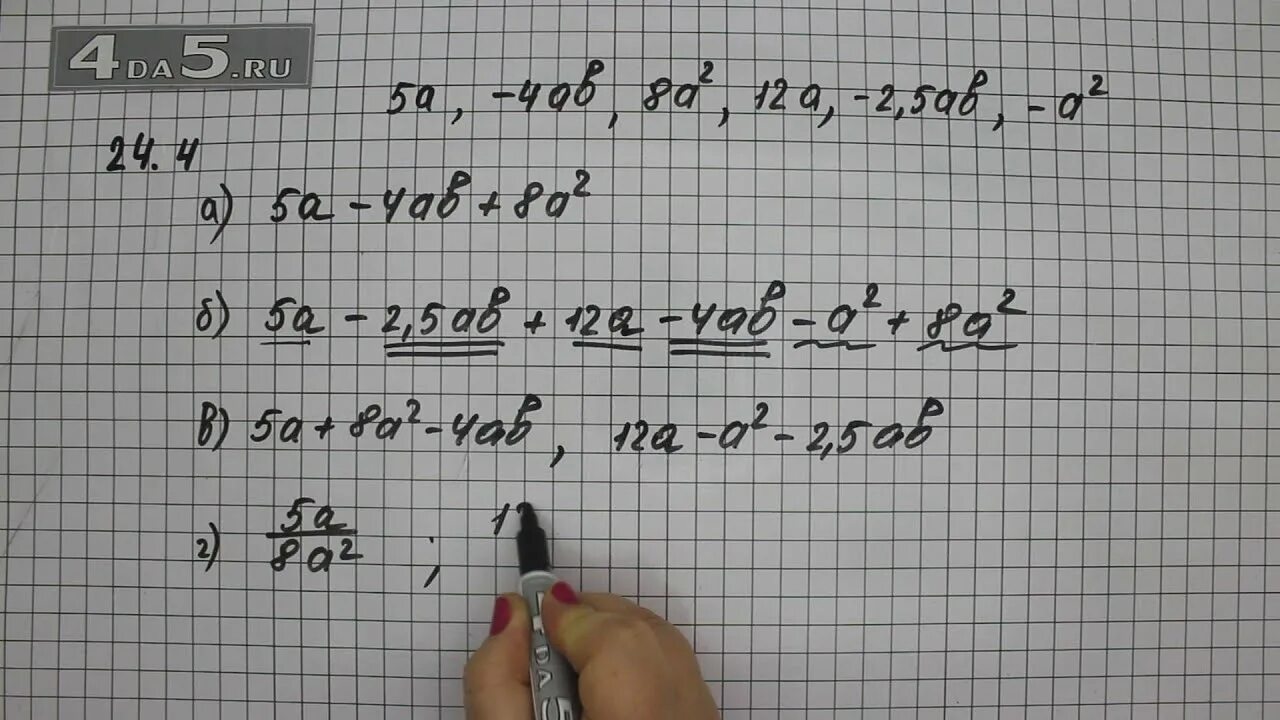 4DA5.RU
5a, -4ab, 8a², 12a, -2,5ab, -a²
24.4
а) 5a - 4ab + 8a²
б) 5a - 2,5ab + 12a - 4ab - a² + 8a²
в) 5a + 8a² - 4ab, 12a - a² - 2,5ab
г) 5a/8a² ; 1